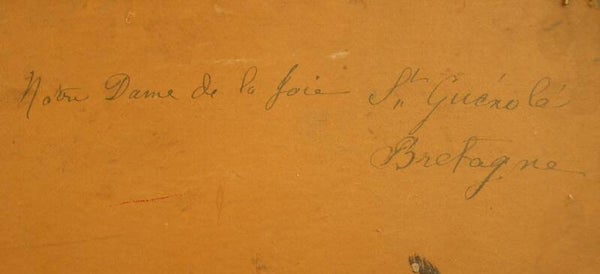 Notre Dame de la Joie St Guénolé
Bretagne